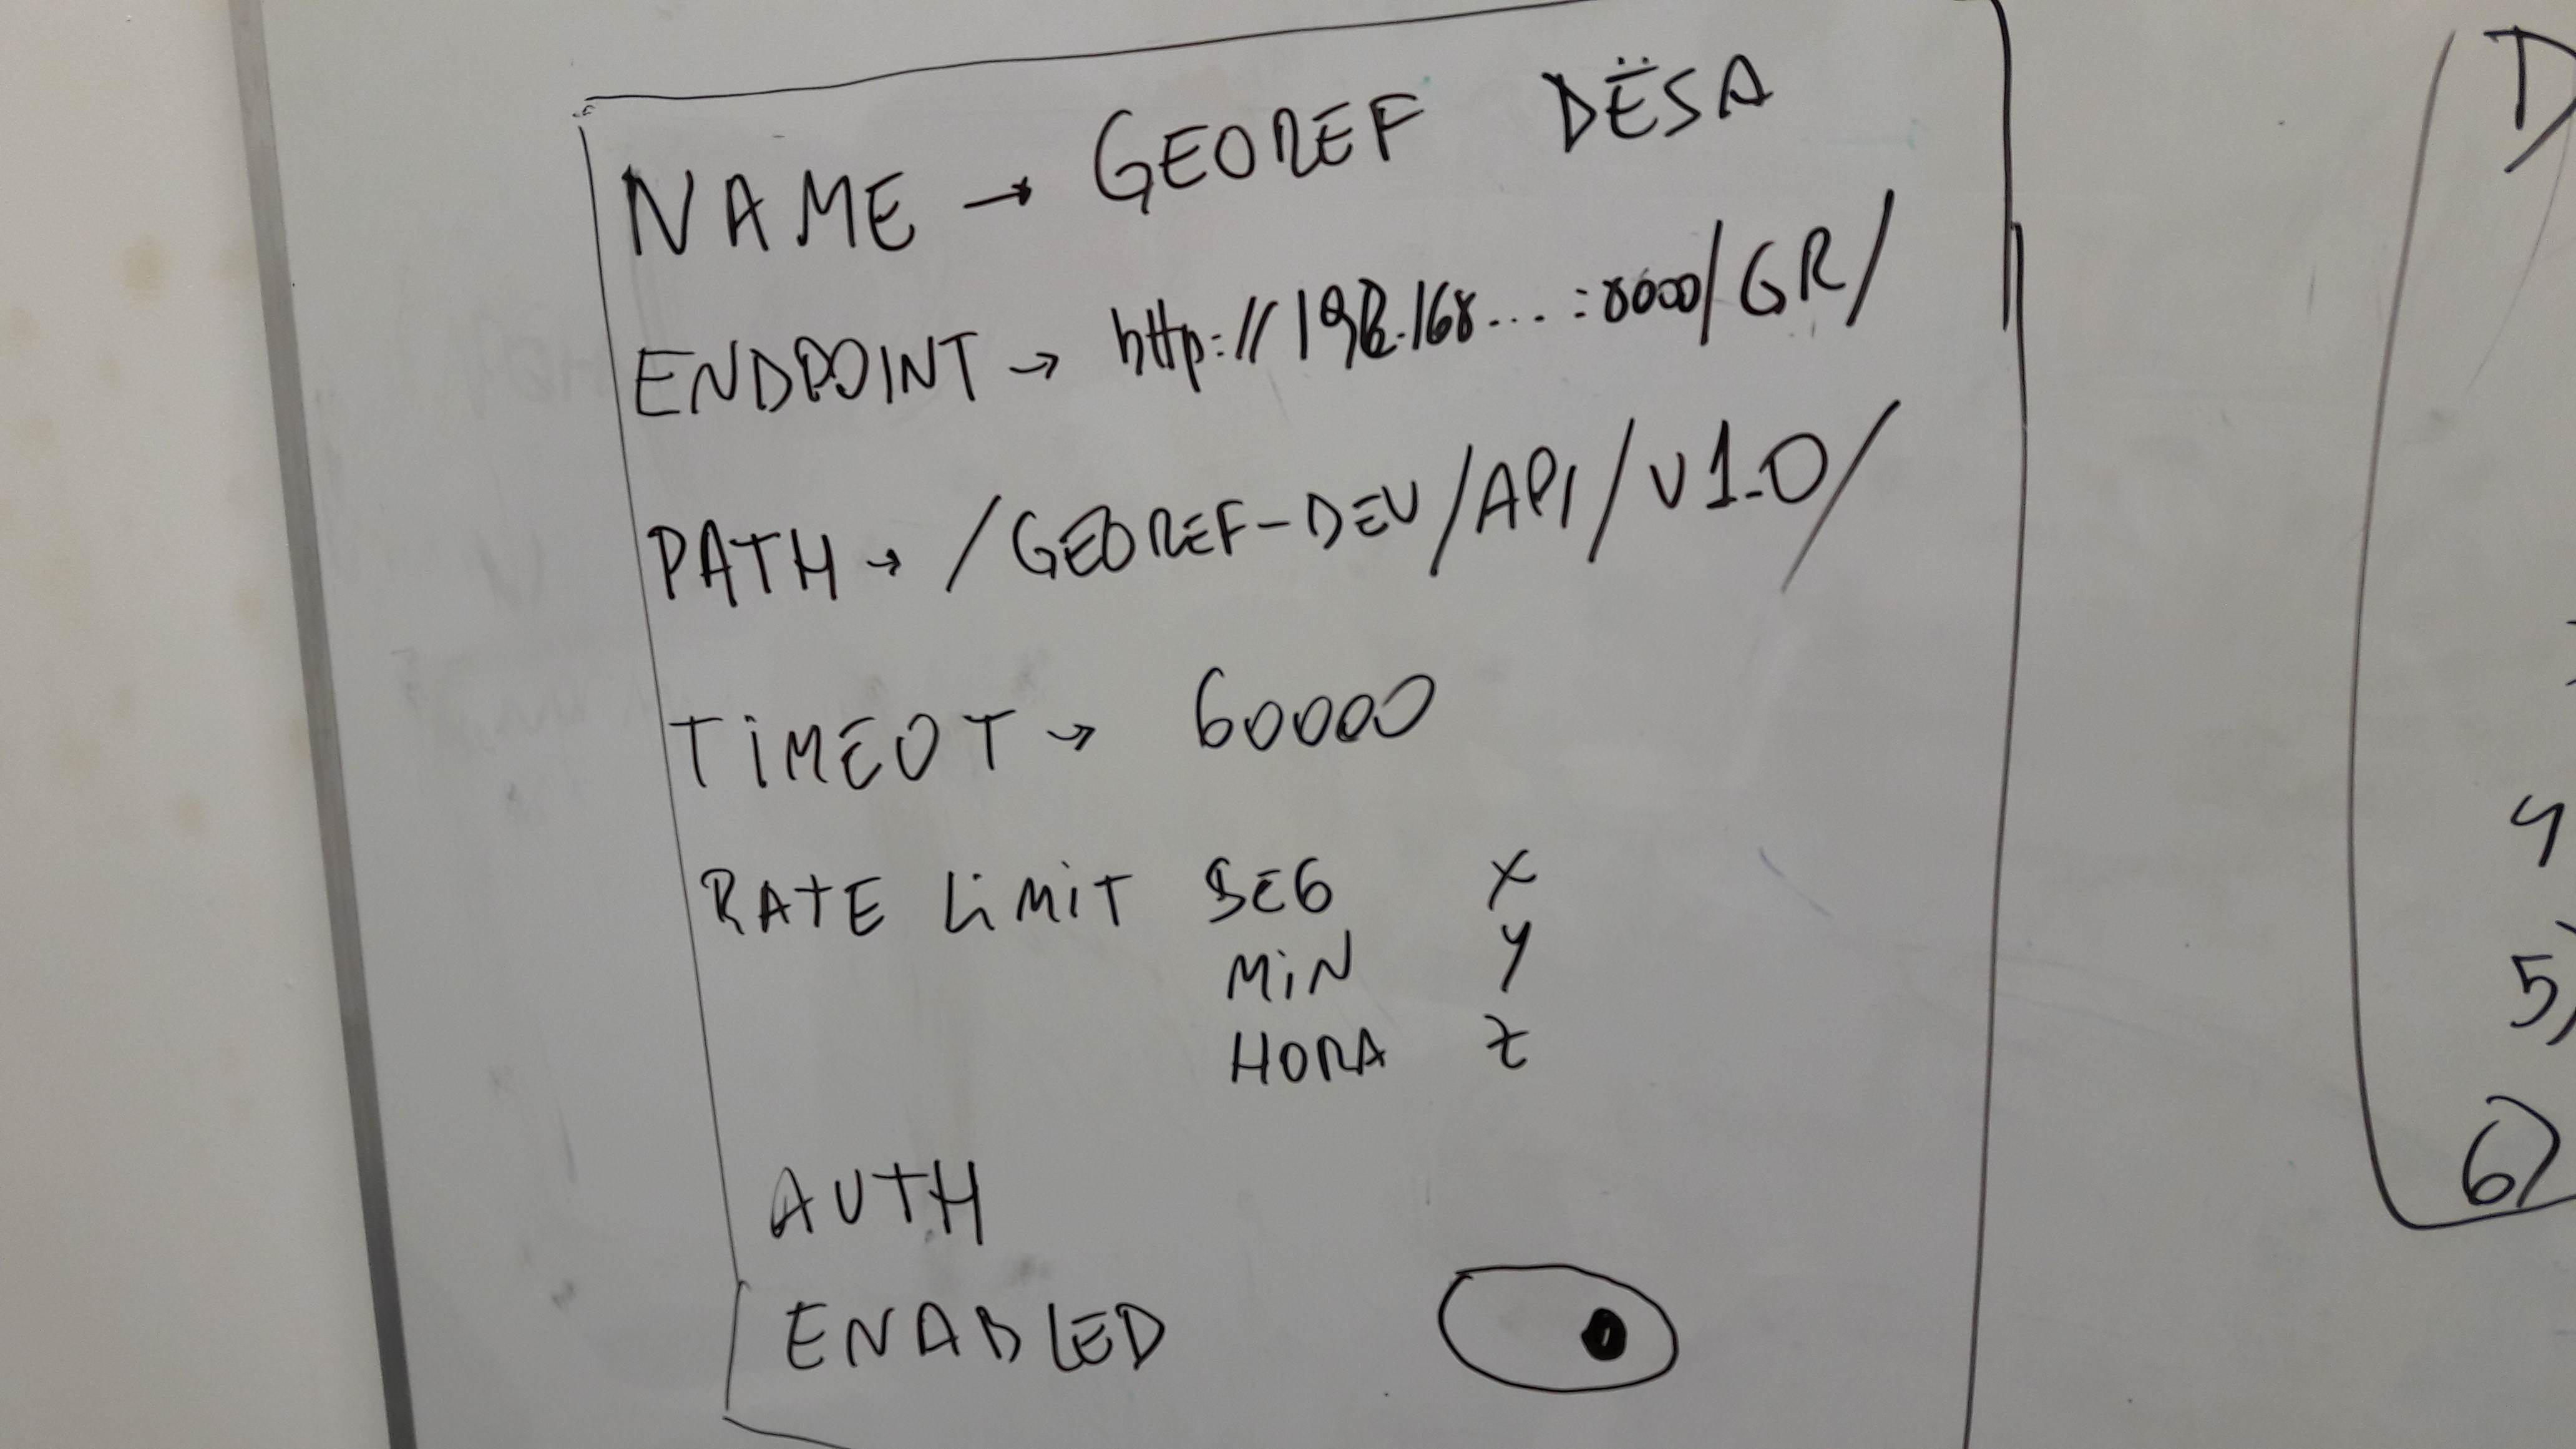 NAME → GEOREF DËSA
ENDPOINT → http://192.168....:8000/GR/
PATH → /GEOREF-DEV/API/V1.0/
TIMEOT → 60000
RATE LIMIT SEG X
MIN Y
HORA Z
AUTH
ENABLED
D
4
5)
6)